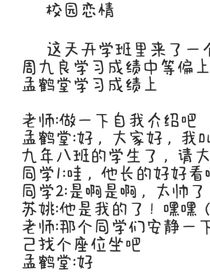 校园恋情
这天开学班里来了一个
周九良学习成绩中等偏上
孟鹤堂学习成绩上
老师:做一下自我介绍吧
孟鹤堂:好，大家好，我叫
九年八班的学生了，请大
同学1:哇，他长的好好看
同学2:是啊是啊，太帅了
苏姚:他是我的了！嘿嘿（
老师:那个同学们安静一下
己找个座位坐吧
孟鹤堂:好